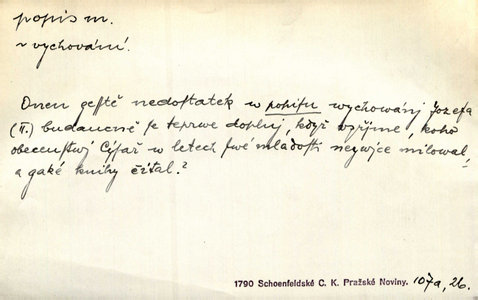 popis m.
~ vychování.
Onen gesstě nedostatek w popisu wychowánj Jozefa
(II.) budaucně se teprwe doplnj, když wygjme, koho
obecenstwj Cýsař w letech swé mladosti neywjce milowal,
a gaké knihy čítal.?
1790 Schoenfeldské C. K. Pražské Noviny. 107a, 26.